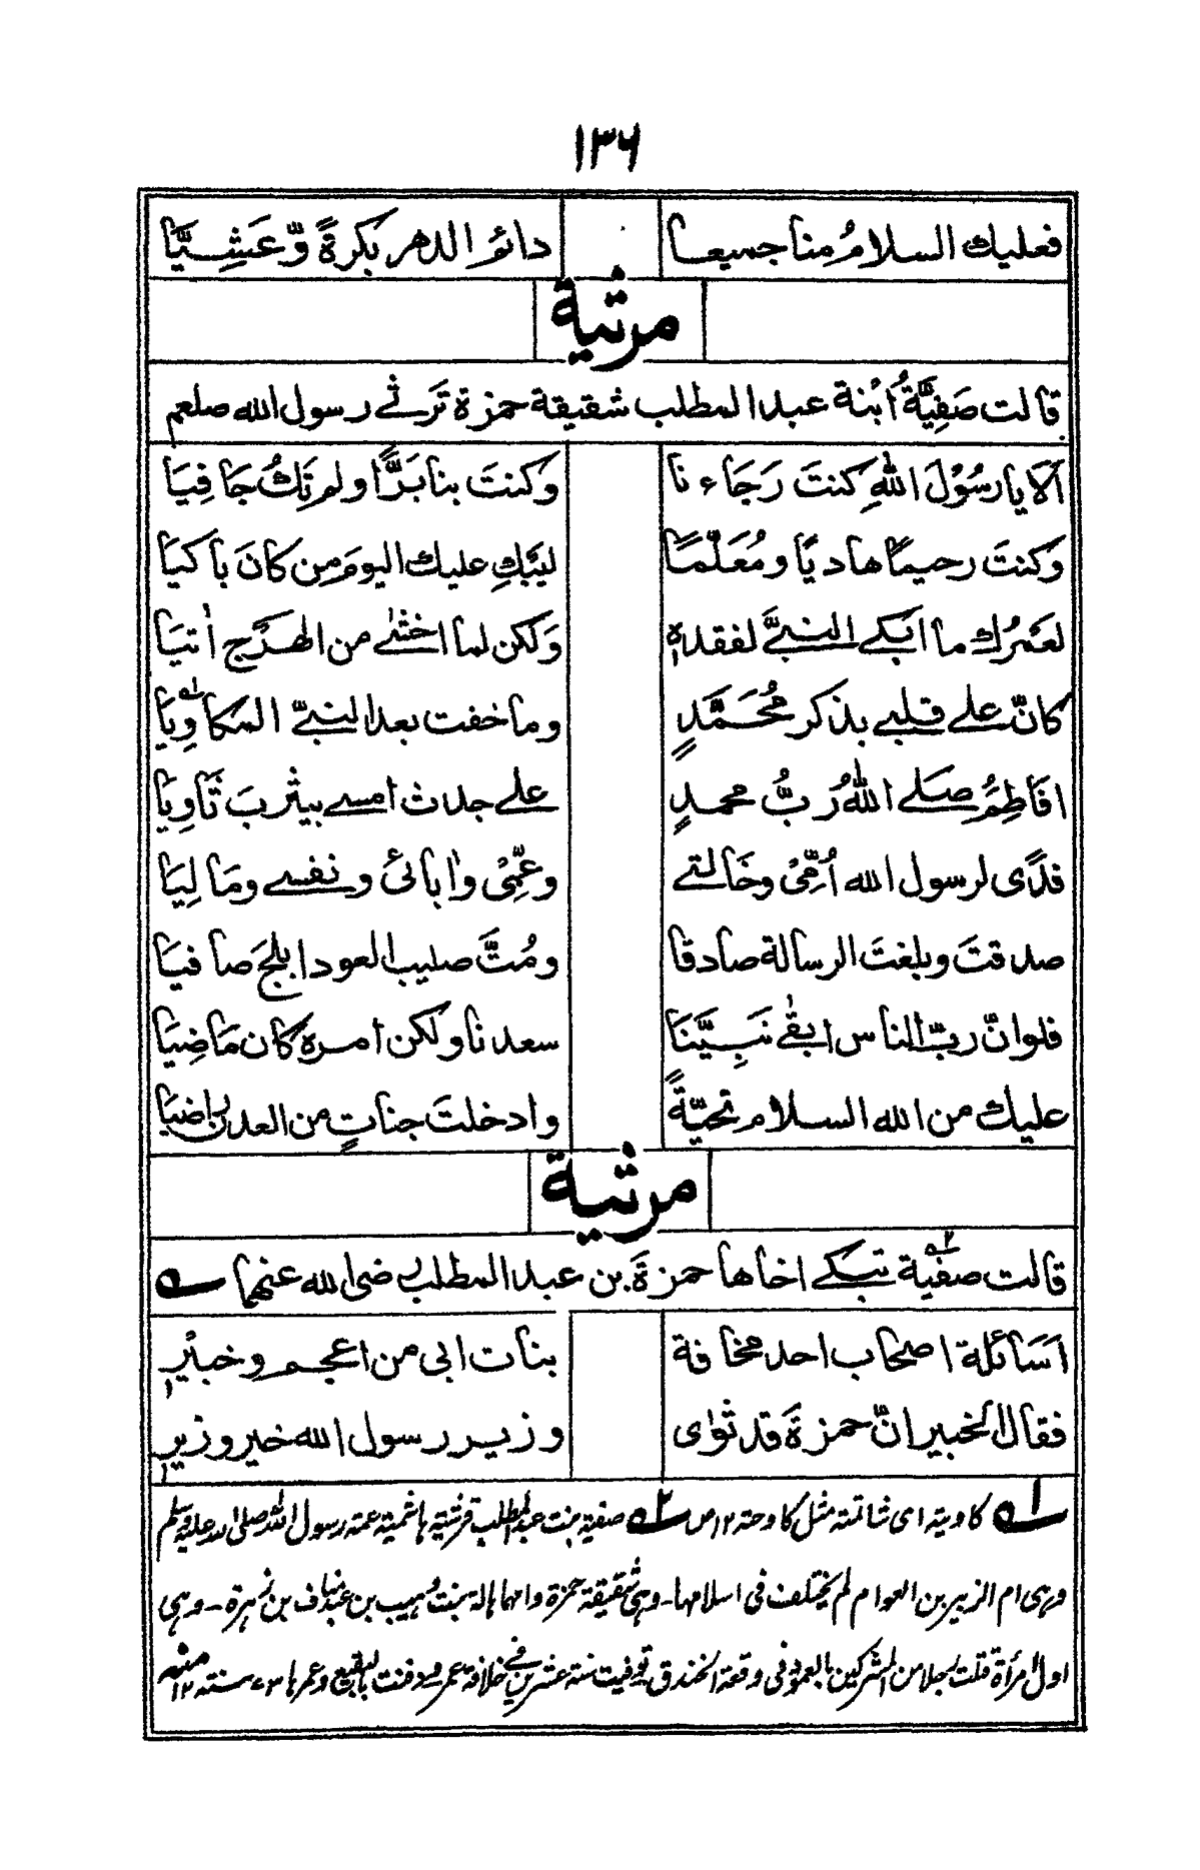 ۱۳۶
فعليك السلامُ منا جميعا دائم الدهر بكرةً وّ عَشِيًّا
مرثية
قالت صَفِيَّةُ ابْنة عبد المطلب شقيقة حمزة تَرثي رسول الله صلعم
اَلَا يا رسُوْلَ اللهِ كنتَ رَجَاءنا وكنتَ بنا بَرًّا ولم تكُ جَافِيَا
وكنتَ رحيمًا هاديًا ومُعَلّمًا ليَبْكِ عليك اليومَ من كانَ باكيَا
لعَمرُك ما ابكي النبيَّ لفقده ولكن لما اخشى من الهرْج اٰتيَا
كانّ على قلبي بذكر مُحَمَّدٍ وما خفت بعد النبيّ المكاوِيَا
افاطِمُ صَلى اللهُ رَبُّ محمدٍ على جدث امسى بيثربَ ثَاوِيَا
فدًى لرسول الله اُمِّيْ وخَالتي وعمِّيْ واٰبائي ونفسي ومَا لِيَا
صدقتَ وبلغتَ الرسالة صادقا ومُتَّ صليب العود ابلجَ صافيَا
فلو انّ ربّ الناس ابقٰى نَبِيَّنَا سعدنا ولكن امره كان مَاضِيَا
عليك من الله السلام تحيّةً وادخلتَ جناتٍ من العدن راضيَا
مرثية
قالت صفيّة۲ تبكي اخاها حمزةَ بن عبد المطلب رضى الله عنهما
اسَائلة اصحاب احد مخافة بنات ابى من اعجم وخبيْرٖ
فقال الخبير انّ حمزةَ قد ثوٰى وزير رسول الله خير وزيرٖ
۱ كاوية اى شاتمة مثل كاوحة ۱۲ ص ۲ صفية بنت عبد المطلب قرشية هاشمية عمة رسول الله صلى الله عليه وسلم
وهى ام الزبير بن العوام لم يختلف فى اسلامها ـ وهى شقيقة حمزة وامهما هالة بنت وهيب بن عبد مناف بن زهرة ـ وهى
اول امرأة قتلت رجلا من المشركين بالعمود فى وقعة الخندق توفيت سنة عشرين فى خلافة عمر ودفنت بالبقيع وعمرها ۷۳ سنة ۱۲ منه